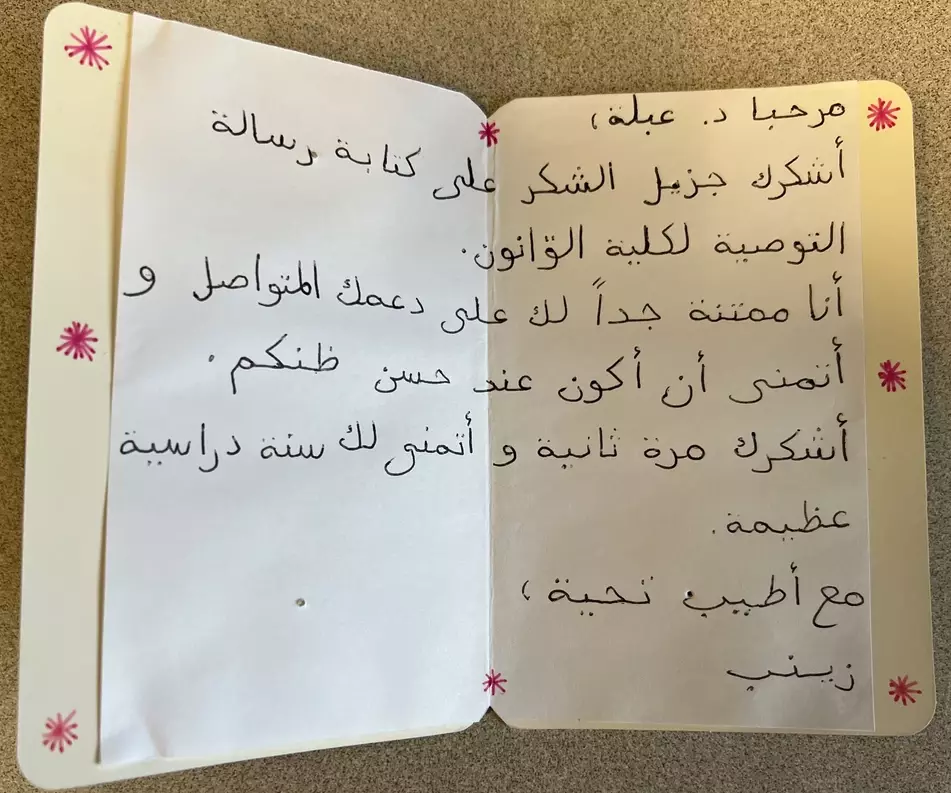 مرحبا د. عبلة،
أشكرك جزيل الشكر على كتابة رسالة
التوصية لكلية القانون.
أنا ممتنة جداً لك على دعمك المتواصل و
أتمنى أن أكون عند حسن ظنكم.
أشكرك مرة ثانية و أتمنى لك سنة دراسية
عظيمة.
مع أطيب تحية،
زينب